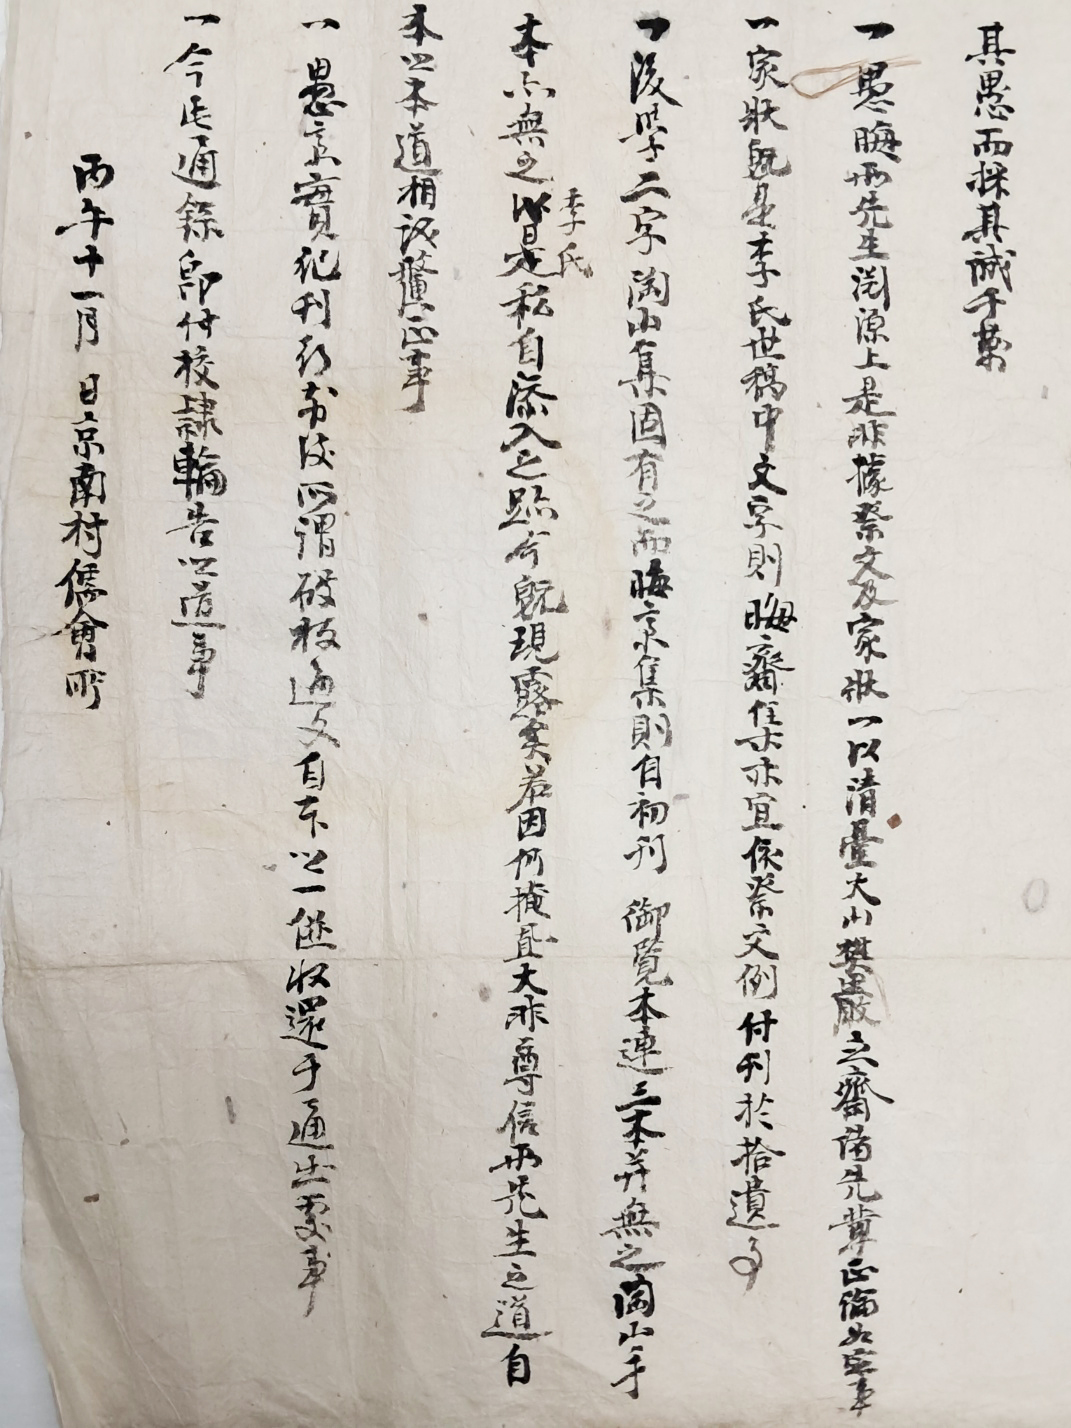 其愚而採其誠千萬
一愚晦兩先生淵源上是非據祭文及家狀一以淸臺大山樊巖立齋諸先輩正論如寔事
一家狀旣是李氏世稿中文字則晦齋集亦宜依祭文例付刊於拾遺事
一後學二字陶山集固有之而晦齋集則自初刊 御覽本連三本幷無之陶山手
本亦無之皆是李氏私自添入之跡今旣現露矣若因何掩置大非尊信兩先生之道自
本以本道相議釐正事
一愚齋實紀刊行前後所謂破板通文自下以一倂收還于通出處事
一今此通錄卽付校隷輪告以道事
丙午十一月 日京南村儒會所